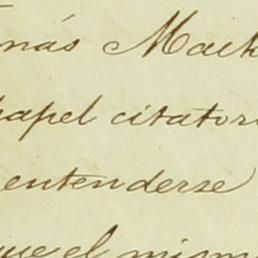 más Mack
papel citator
entenderse
que el mism